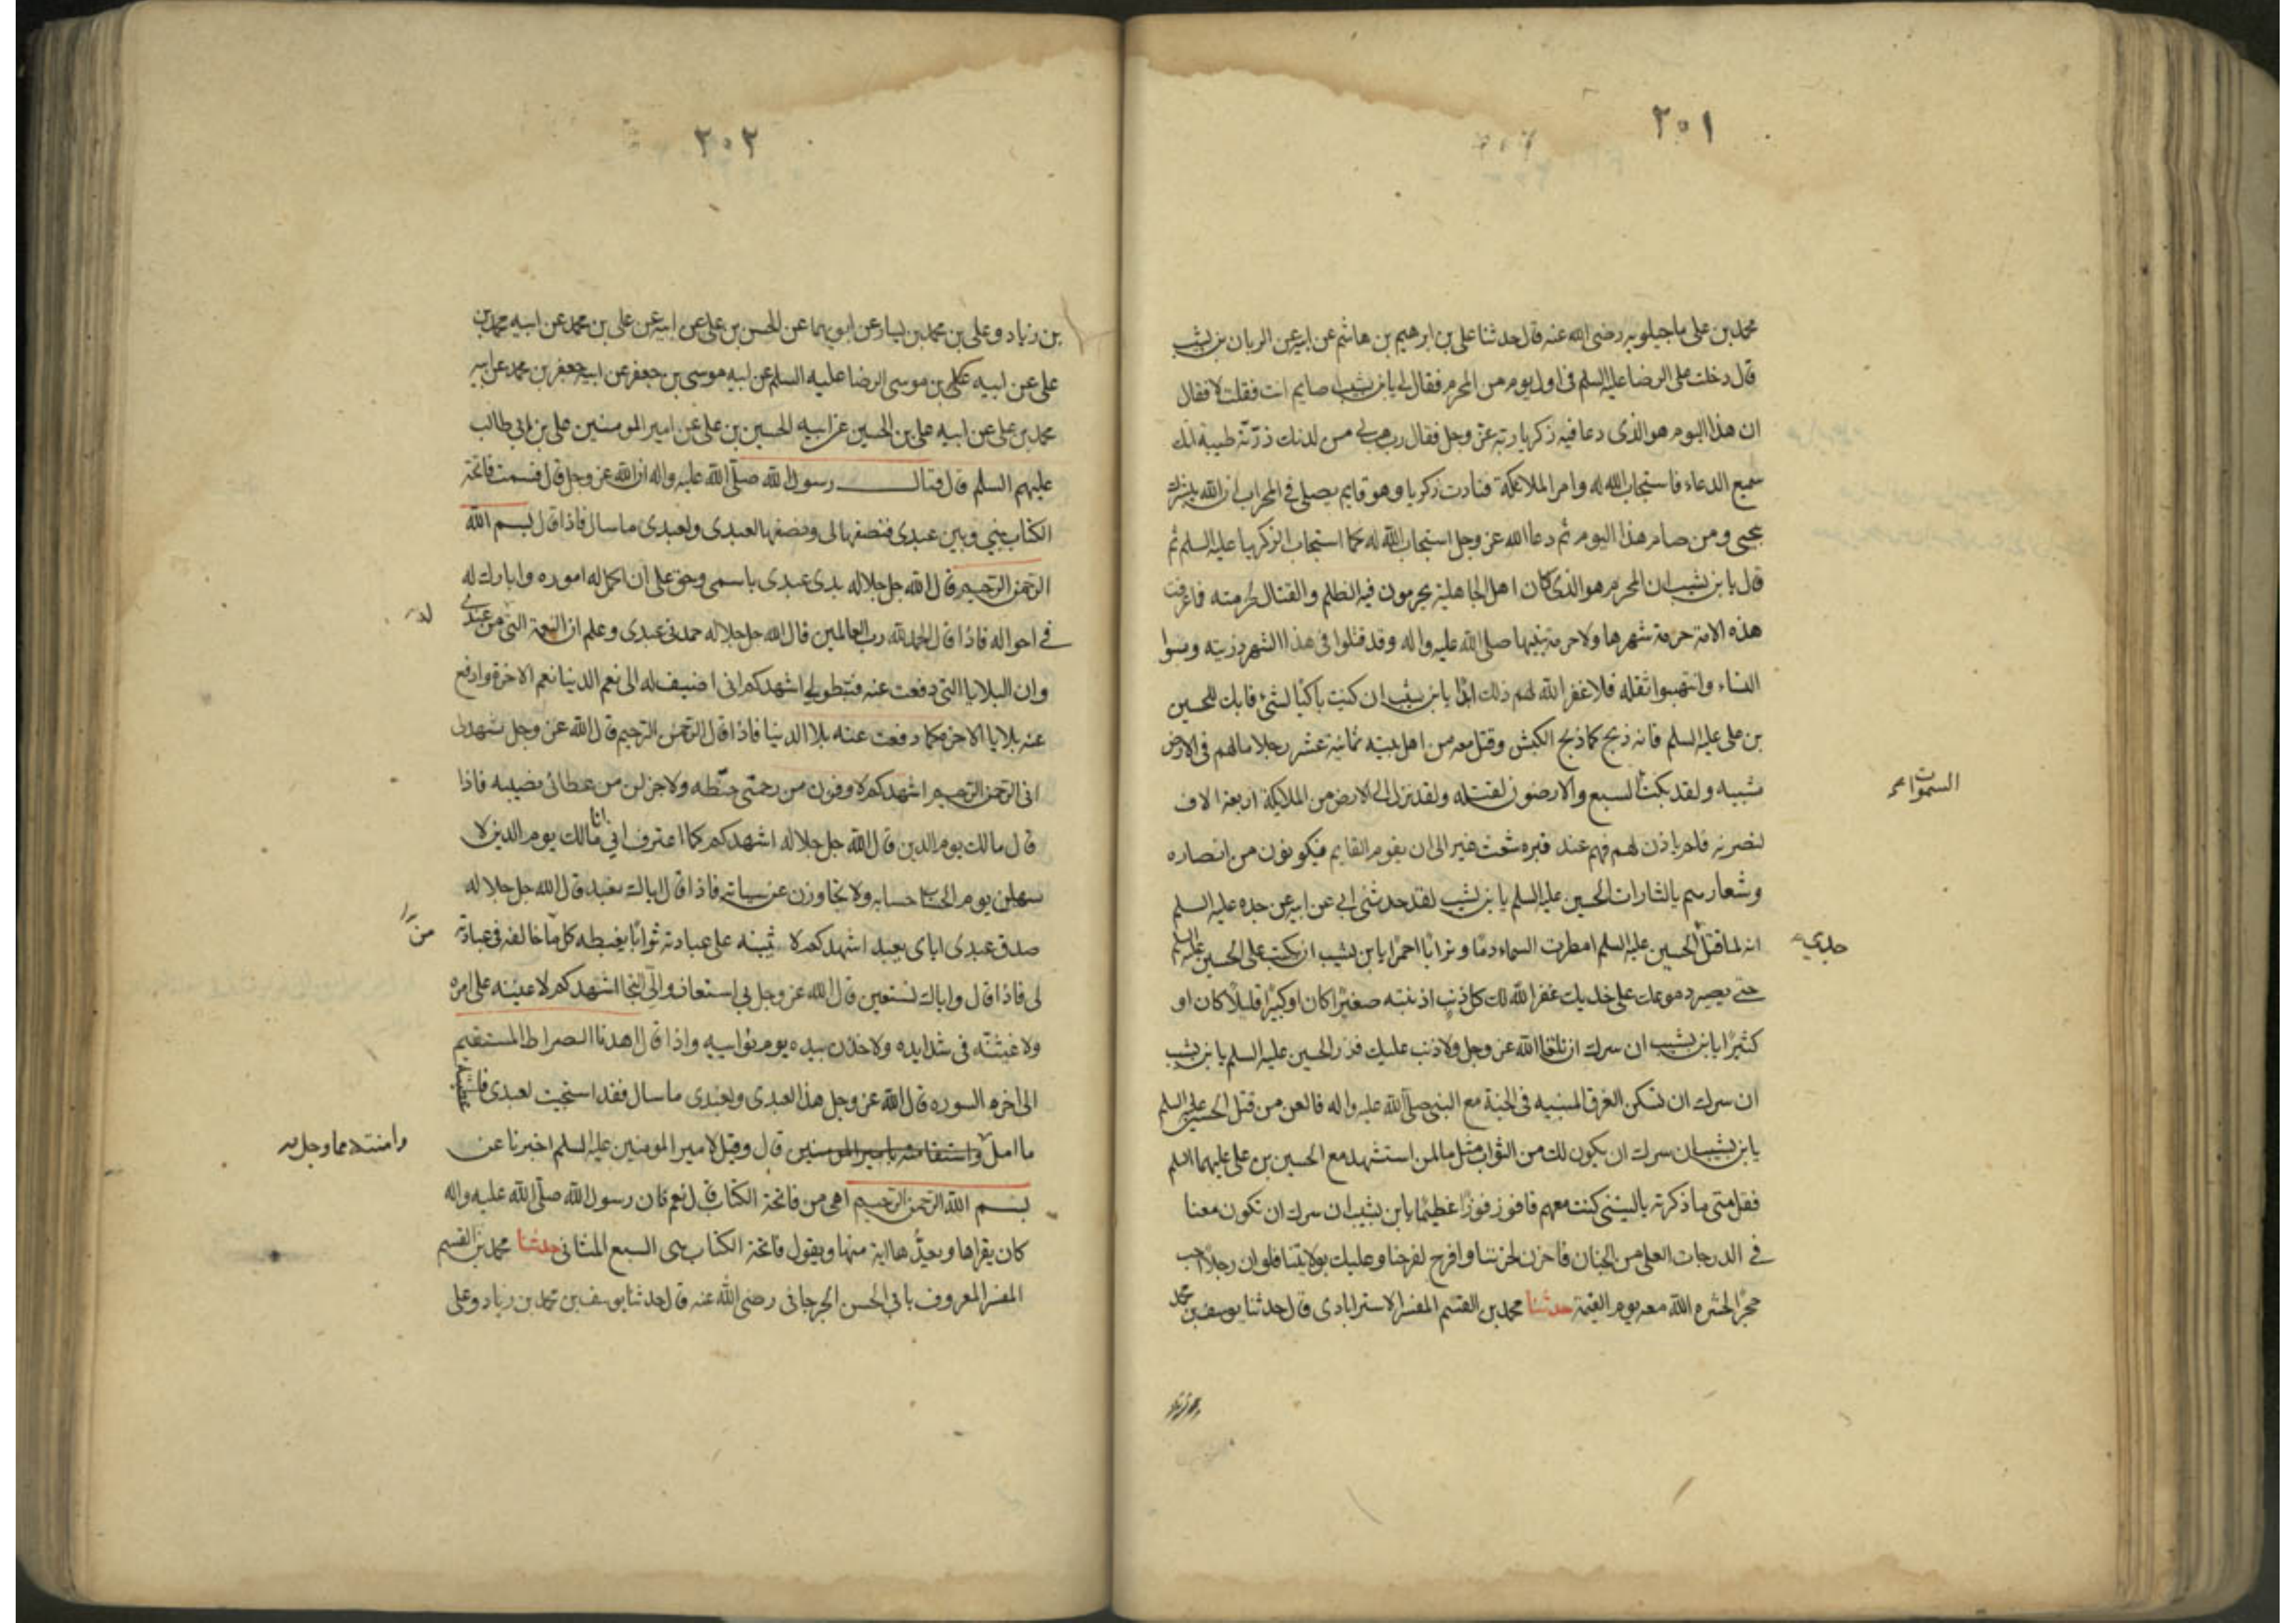 ٢٠١
محمد بن علي ماجيلويه رضى الله عنه قال حدثنا على بن ابرهيم بن هاشم عن ابيه عن الريان بن شبيب
قال دخلت على الرضا عليه السلم فى اول يوم من المحرم فقال لى يا بن شبيب صايم انت فقلت لا فقال
ان هذا اليوم هو الذى دعا فيه زكريا ربه عز وجل فقال رب هب لى من لدنك ذرية طيبة انك
سميع الدعاء فاستجاب الله له وامر الملائكة فنادت زكريا وهو قايم يصلى فى المحراب ان الله يبشرك
بيحيى ومن صام هذا اليوم ثم دعا الله عز وجل استجاب الله له كما استجاب لزكريا عليه السلم ثم
قال يا بن شبيب ان المحرم هو الذى كان اهل الجاهلية يحرمون فيه الظلم والقتال لحرمته فما عرفت
هذه الامة حرمة شهرها ولا حرمة نبيها صلى الله عليه واله وقد قتلوا فى هذا الشهر ذريته وسبوا
النساء وانتهبوا ثقله فلا غفر الله لهم ذلك ابدا يا بن شبيب ان كنت باكيا لشئ فابك للحسين
بن على عليه السلم فانه ذبح كما ذبح الكبش وقتل معه من اهل بيته ثمانية عشر رجلا مالهم فى الارض
شبيه ولقد بكت السبع والارضون لقتله ولقد نزل الى الارض من الملايكة اربعة الاف
السموات
لنصرته فلم ياذن لهم فهم عند قبره شعث غبر الى ان يقوم القايم فيكونون من انصاره
وشعارهم يالثارات الحسين عليه السلم يا بن شبيب لقد حدثنى ابى عن ابيه عن جده عليه السلم
انه لما قتل الحسين عليه السلم امطرت السماء دما وترابا احمرا يا بن شبيب ان بكيت على الحسين عليه السلم
جدى
حتى يصير دموعك على خديك غفر الله لك كل ذنب اذنبته صغيرا كان او كبيرا قليلا كان او
كثيرا يا بن شبيب ان سرك ان تلقا الله عز وجل ولا ذنب عليك فزر الحسين عليه السلم يا بن شبيب
ان سرك ان تسكن الغرف المبنيه فى الجنة مع النبى صلى الله عليه واله فالعن من قتل الحسين عليه السلم
يا بن شبيب ان سرك ان يكون لك من الثواب مثل ما لمن استشهد مع الحسين بن على عليهما السلم
فقل متى ما ذكرته ياليتنى كنت معهم فافوز فوزا عظيما يا بن شبيب ان سرك ان تكون معنا
فى الدرجات العلى من الجنان فاحزن لحزننا وافرح لفرحنا وعليك بولايتنا فلو ان رجلا احب
حجرا لحشره الله معه يوم القيمة حدثنا محمد بن القسم المفسر الاسترابادى قال حدثنا يوسف بن محمد
٢٠٢
بن زياد وعلى بن محمد بن سيار عن ابويهما عن الحسن بن على عن ابيه عن على بن محمد عن ابيه محمد بن
على عن ابيه على بن موسى الرضا عليه السلم عن ابيه موسى بن جعفر عن ابيه جعفر بن محمد عن ابيه
محمد بن على عن ابيه على بن الحسين عن ابيه الحسين بن على عن امير المومنين على بن ابى طالب
عليهم السلم قال قال رسول الله صلى الله عليه واله ان الله عز وجل قال قسمت فاتحة
الكتاب بينى وبين عبدى فنصفها لى ونصفها لعبدى ولعبدى ما سال فاذا قال بسم الله
الرحمن الرحيم قال الله جل جلاله بدى عبدى باسمى وحق على ان اكمل له اموره وابارك له
فى احواله فاذا قال الحمد لله رب العالمين قال الله جل جلاله حمدنى عبدى وعلم ان النعمة التى من عندى
وان البلايا التى دفعت عنه فتطولى اشهدكم انى اضيف له الى نعم الدنيا نعم الاخرة وادفع
عنه بلايا الاخرة كما دفعت عنه بلا الدنيا فاذا قال الرحمن الرحيم قال الله عز وجل شهد لى
انى الرحمن الرحيم اشهدكم لاوفرن من رحمتى حظه ولاجزلن من عطائى نصيبه فاذا
قال مالك يوم الدين قال الله جل جلاله اشهدكم كما اعترف انى انا مالك يوم الدين لا
سهلن يوم الحساب حسابه ولا تجاوزن عن سياته فاذا قال اياك نعبد قال الله جل جلاله
صدق عبدى اياى يعبد اشهدكم لا ثيبنه على عبادته ثوابا يغبطه كل ما خالفه فى عبادته
من
لى فاذا قال واياك نستعين قال الله عز وجل بى استعان والى التجا اشهدكم لاعيننه على امره
ولا غيثنه فى شدايده ولاخذن بيده يوم نوايبه واذا قال اهدنا الصراط المستقيم
الى اخره السوره قال الله عز وجل هذا لعبدى ولعبدى ما سال فقد استجبت لعبدى
ما امل قال وقيل لامير المومنين عليه السلم اخبرنا عن
وامنته مما وجل منه
بسم الله الرحمن الرحيم اهى من فاتحة الكتاب قال نعم كان رسول الله صلى الله عليه واله
كان يقراها ويعدها اية منها ويقول فاتحة الكتاب هى السبع المثانى حدثنا محمد بن القسم
المفسر المعروف بابى الحسن الجرجانى رضى الله عنه قال حدثنا يوسف بن محمد بن زياد وعلى